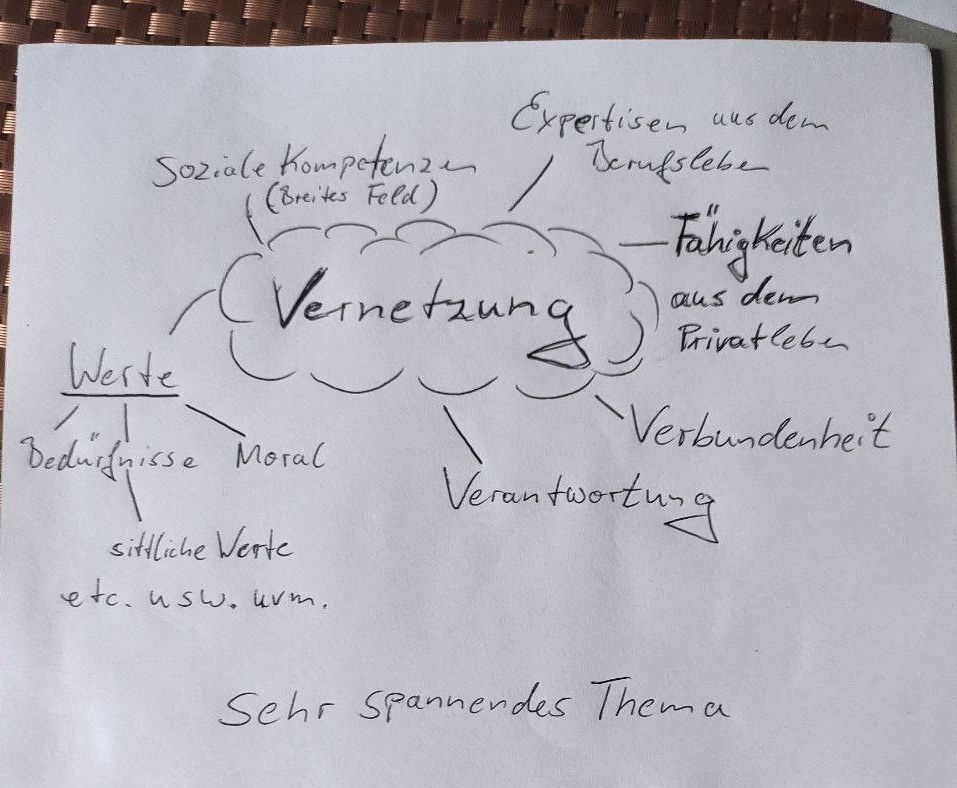 Expertisen aus dem
Berufsleben
Soziale Kompetenzen
(Breites Feld)
Fähigkeiten
aus dem
Privatleben
Vernetzung
Werte
Bedürfnisse
Moral
sittliche Werte
etc. usw. uvm.
Verbundenheit
Verantwortung
Sehr spannendes Thema